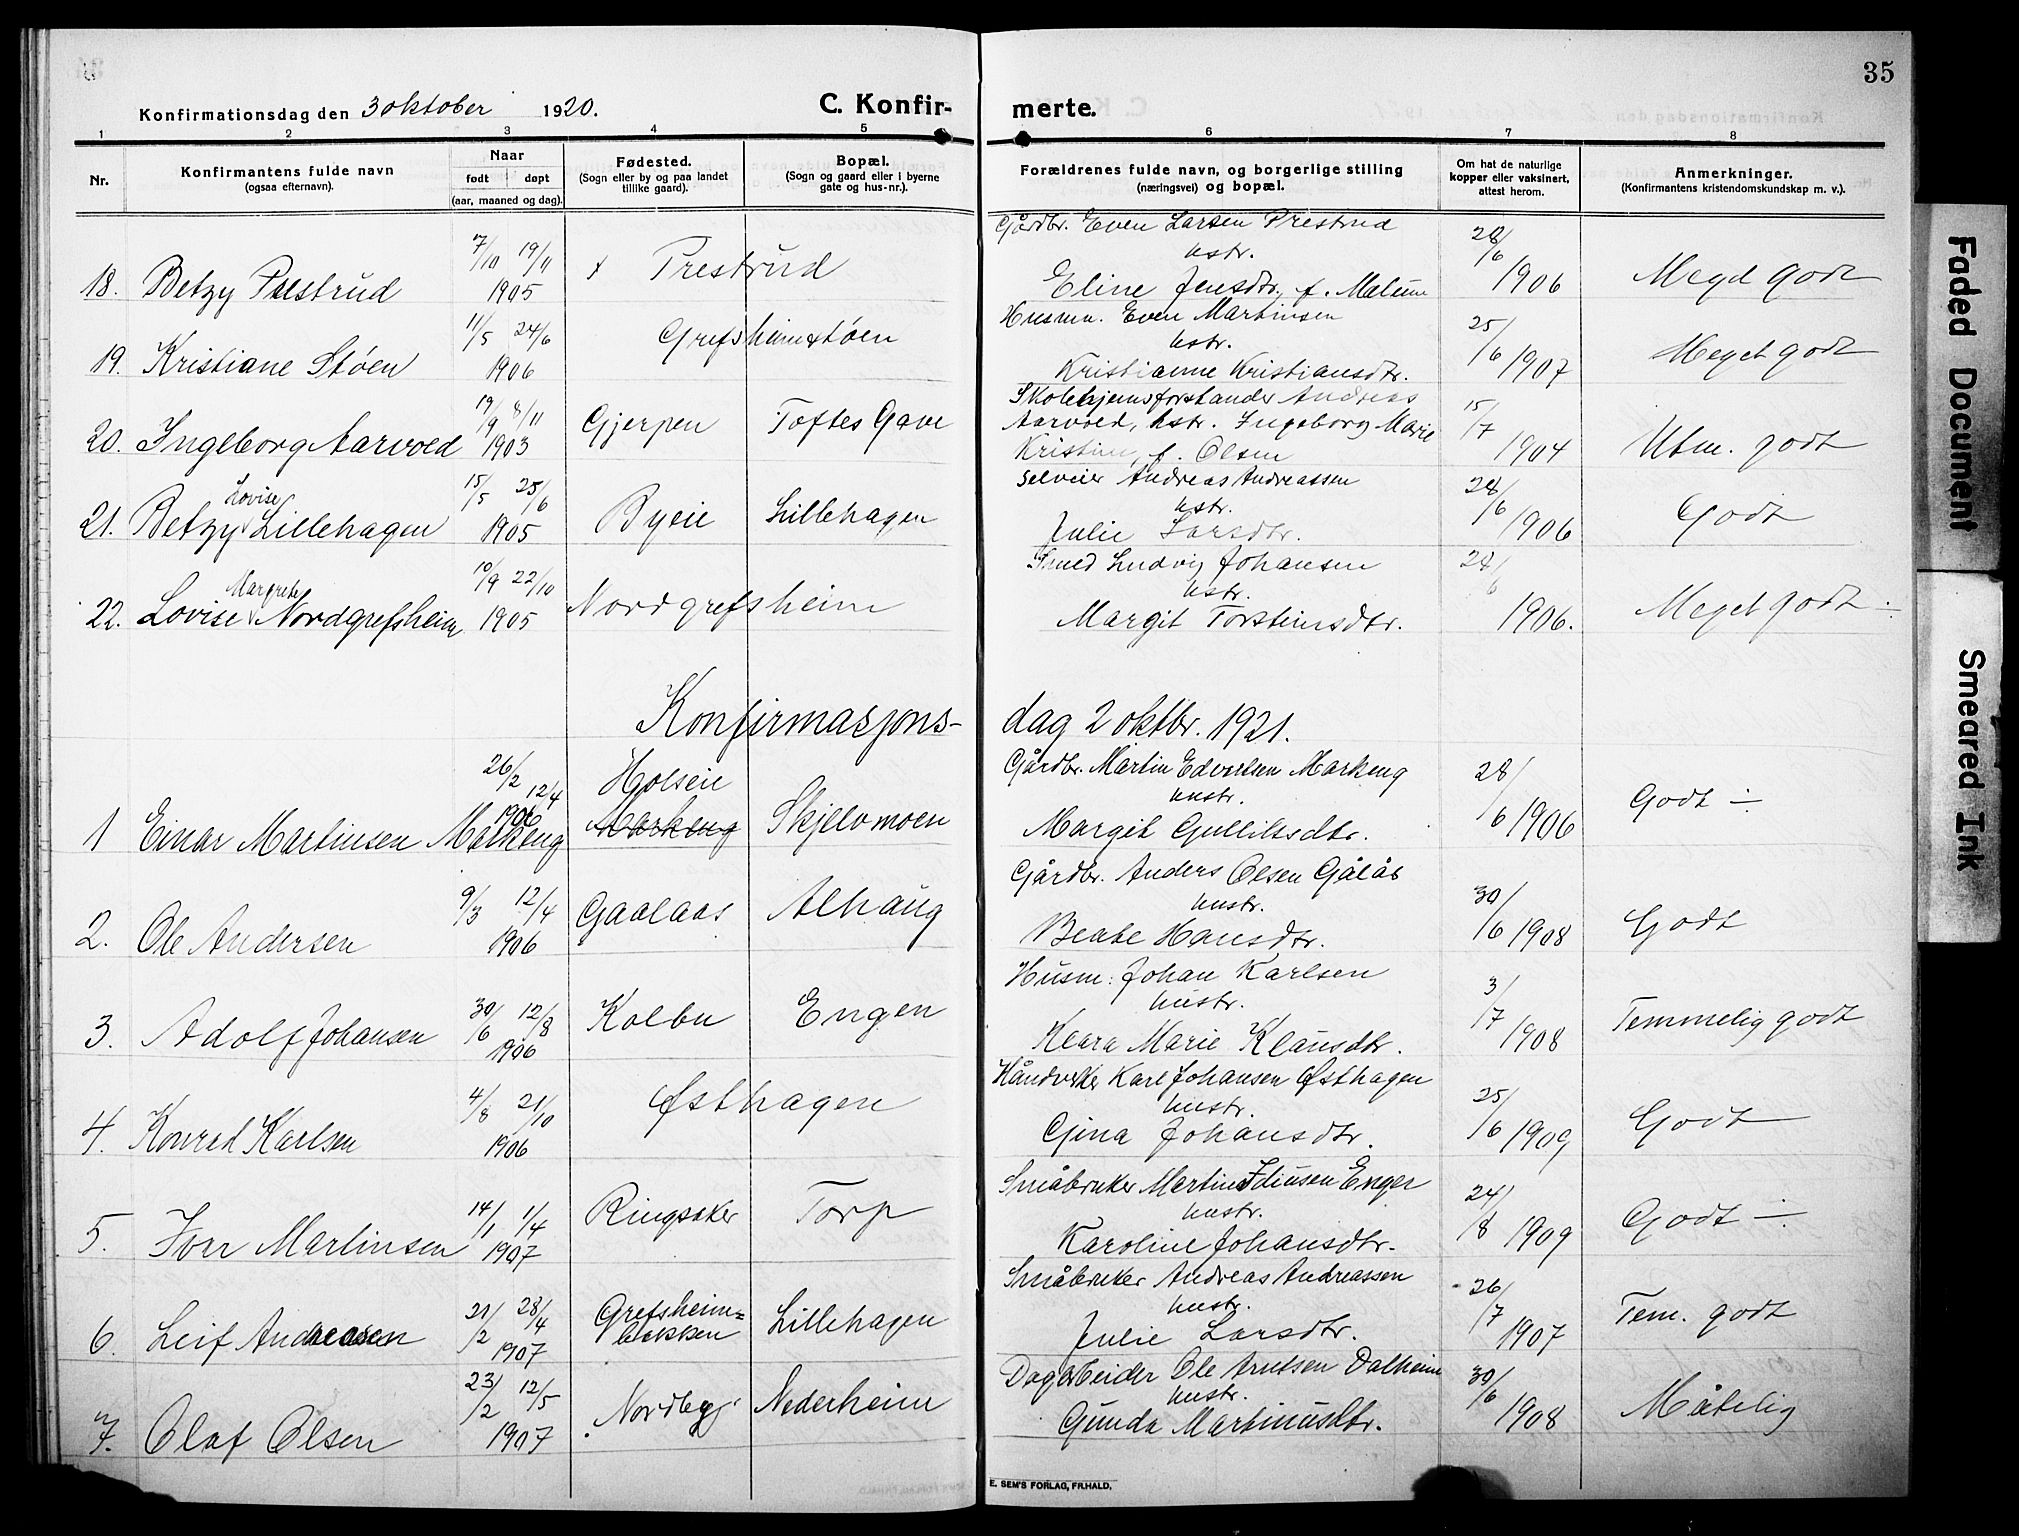 35
Konfirmationsdag den 3 oktober 1920. C. Konfir- merte.
1 2 3 4 5 6 7 8
Nr. Konfirmantens fulde navn (ogsaa efternavn). Naar født døpt (aar, maaned og dag). Fødested. (Sogn eller by og paa landet tillike gaard). Bopæl. (Sogn og gaard eller i byerne gate og hus-nr.). Forældrenes fulde navn, og borgerlige stilling (næringsvei) og bopæl. Om hat de naturlige kopper eller vaksinert, attest herom. Anmerkninger. (Konfirmantens kristendomskundskap m. v.).
Gårdbr. Even Larsen Prestrud
7/10 19/11 hstr. 28/6
18. Betzy Prestrud 1905 Prestrud Eline Jensdtr. f. Melum 1906 Meget godt
Husmn. Even Martinsen
11/5 24/6 Grefsheimstøen hstr. 25/6
19. Kristiane Støen 1906 Kristianne Kristiansdtr. 1907 Meget godt
Skolehjemsforstander Andreas
19/9 8/11 Gjerpen Toftes Gave Aarvoed, hstr. Ingeborg Marie 15/7
20. Ingeborg Aarvoed 1903 Kristine, f. Olsen 1904 Utm. godt
Selveier Andreas Andreassen
Lovise 15/5 25/6 hstr. 28/6
21. Betzy Lillehagen 1905 Byeie Lillehagen Julie Larsdtr. 1906 Godt
Smed Ludvig Johansen
Margrete 10/9 22/10 hstr. 24/6
22. Lovise Nordgrefsheim 1905 Nordgrefsheim Margit Torsteinsdtr. 1906. Meget godt ÷
Konfirmasjons- dag 2 oktbr. 1921.
Gårdbr. Martin Edvartsen Markeng
26/2 12/4 Holseie hustr. 28/6
1 Einar Martinsen Markeng 1906 Markeng Skjelvmoen Margit Gulliksdtr. 1906 Godt ÷
Gårdbr. Anders Olsen Gålås
9/3 12/4 hustr. 30/6
2. Ole Andersen 1906 Gaalaas Alhaug Beate Hansdtr. 1908 Godt
Husm: Johan Karlsen
30/6 12/8 hustr. 3/7
3. Adolf Johansen 1906 Kolbu Engen Klara Marie Klausdtr. 1908 Temmelig godt
Håndverker Karl Johansen Østhagen
4/8 21/10 hustr. 25/6
4. Konrad Karlsen 1906 Østhagen Gina Johansdtr. 1909 Godt
Småbruker Martin Idiusen Enger
14/1 1/4 hustr. 24/8
5. Ivar Martinsen 1907 Ringsaker Torp Karoline Johansdtr. 1909 Godt ÷
Småbruker Andreas Andreassen
21/2 28/4 Grefsheim= hustr. 26/7
6. Leif Andreassen 1907 bakken Lillehagen Julie Larsdtr. 1907 Tem. godt
Dagarbeider Ole Arntsen Dalheim
23/2 12/5 hustr. 30/6
7. Olaf Olsen 1907 Nordbyg. Nederheim Gunda Martinusdtr. 1908 Måtelig
E. SEM'S FORLAG, FR.HALD.
Faded Document
Smeared Ink